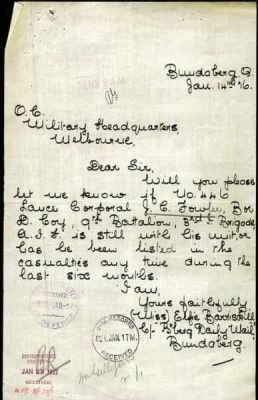 Bundaberg Q.
Jan. 14th '16.
O. C.
Military Headquarters,
Melbourne.
Dear Sir,
Will you please
let me know if No. 446
Lance Corporal J. C. Fowler,
D. Coy, 9th Battalion, 3rd Brigade
A. I. F. is still with his unit, or
has he been listed in the
casualties any time during the
last six months.
I am
Yours faithfully
(Miss) Elsie
c/- B'berg "Daily Mail",
Bundaberg.
DEFENCE
RECEIVED
JAN
RECEIVED